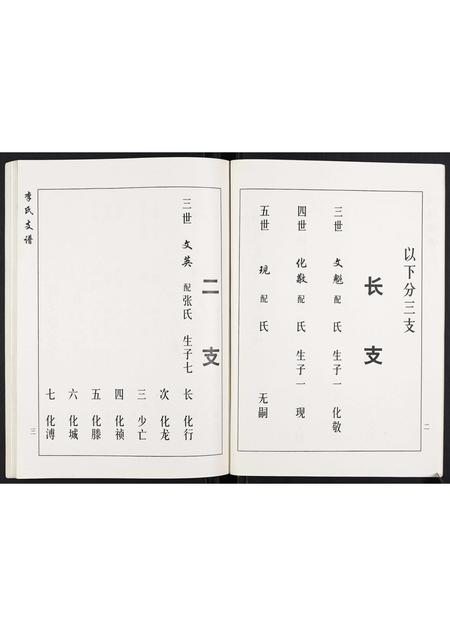 以下分三支
长支
三世 文魁 配 氏 生子一 化敬
四世 化敬 配 氏 生子一 现
五世 现 配 氏 无嗣
二
二支
三世 文英 配张氏 生子七
长 化行
次 化龙
三 少亡
四 化祯
五 化滕
六 化城
七 化溥
李氏支谱
三